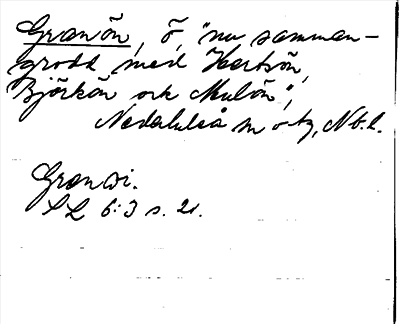 Granön, ö, "nu samman-
grodd med Hertsön,
Björkön och Mulön",
Nederluleå sn o tg, Nb. l.
Granöi.
SL 6:3 s. 21.